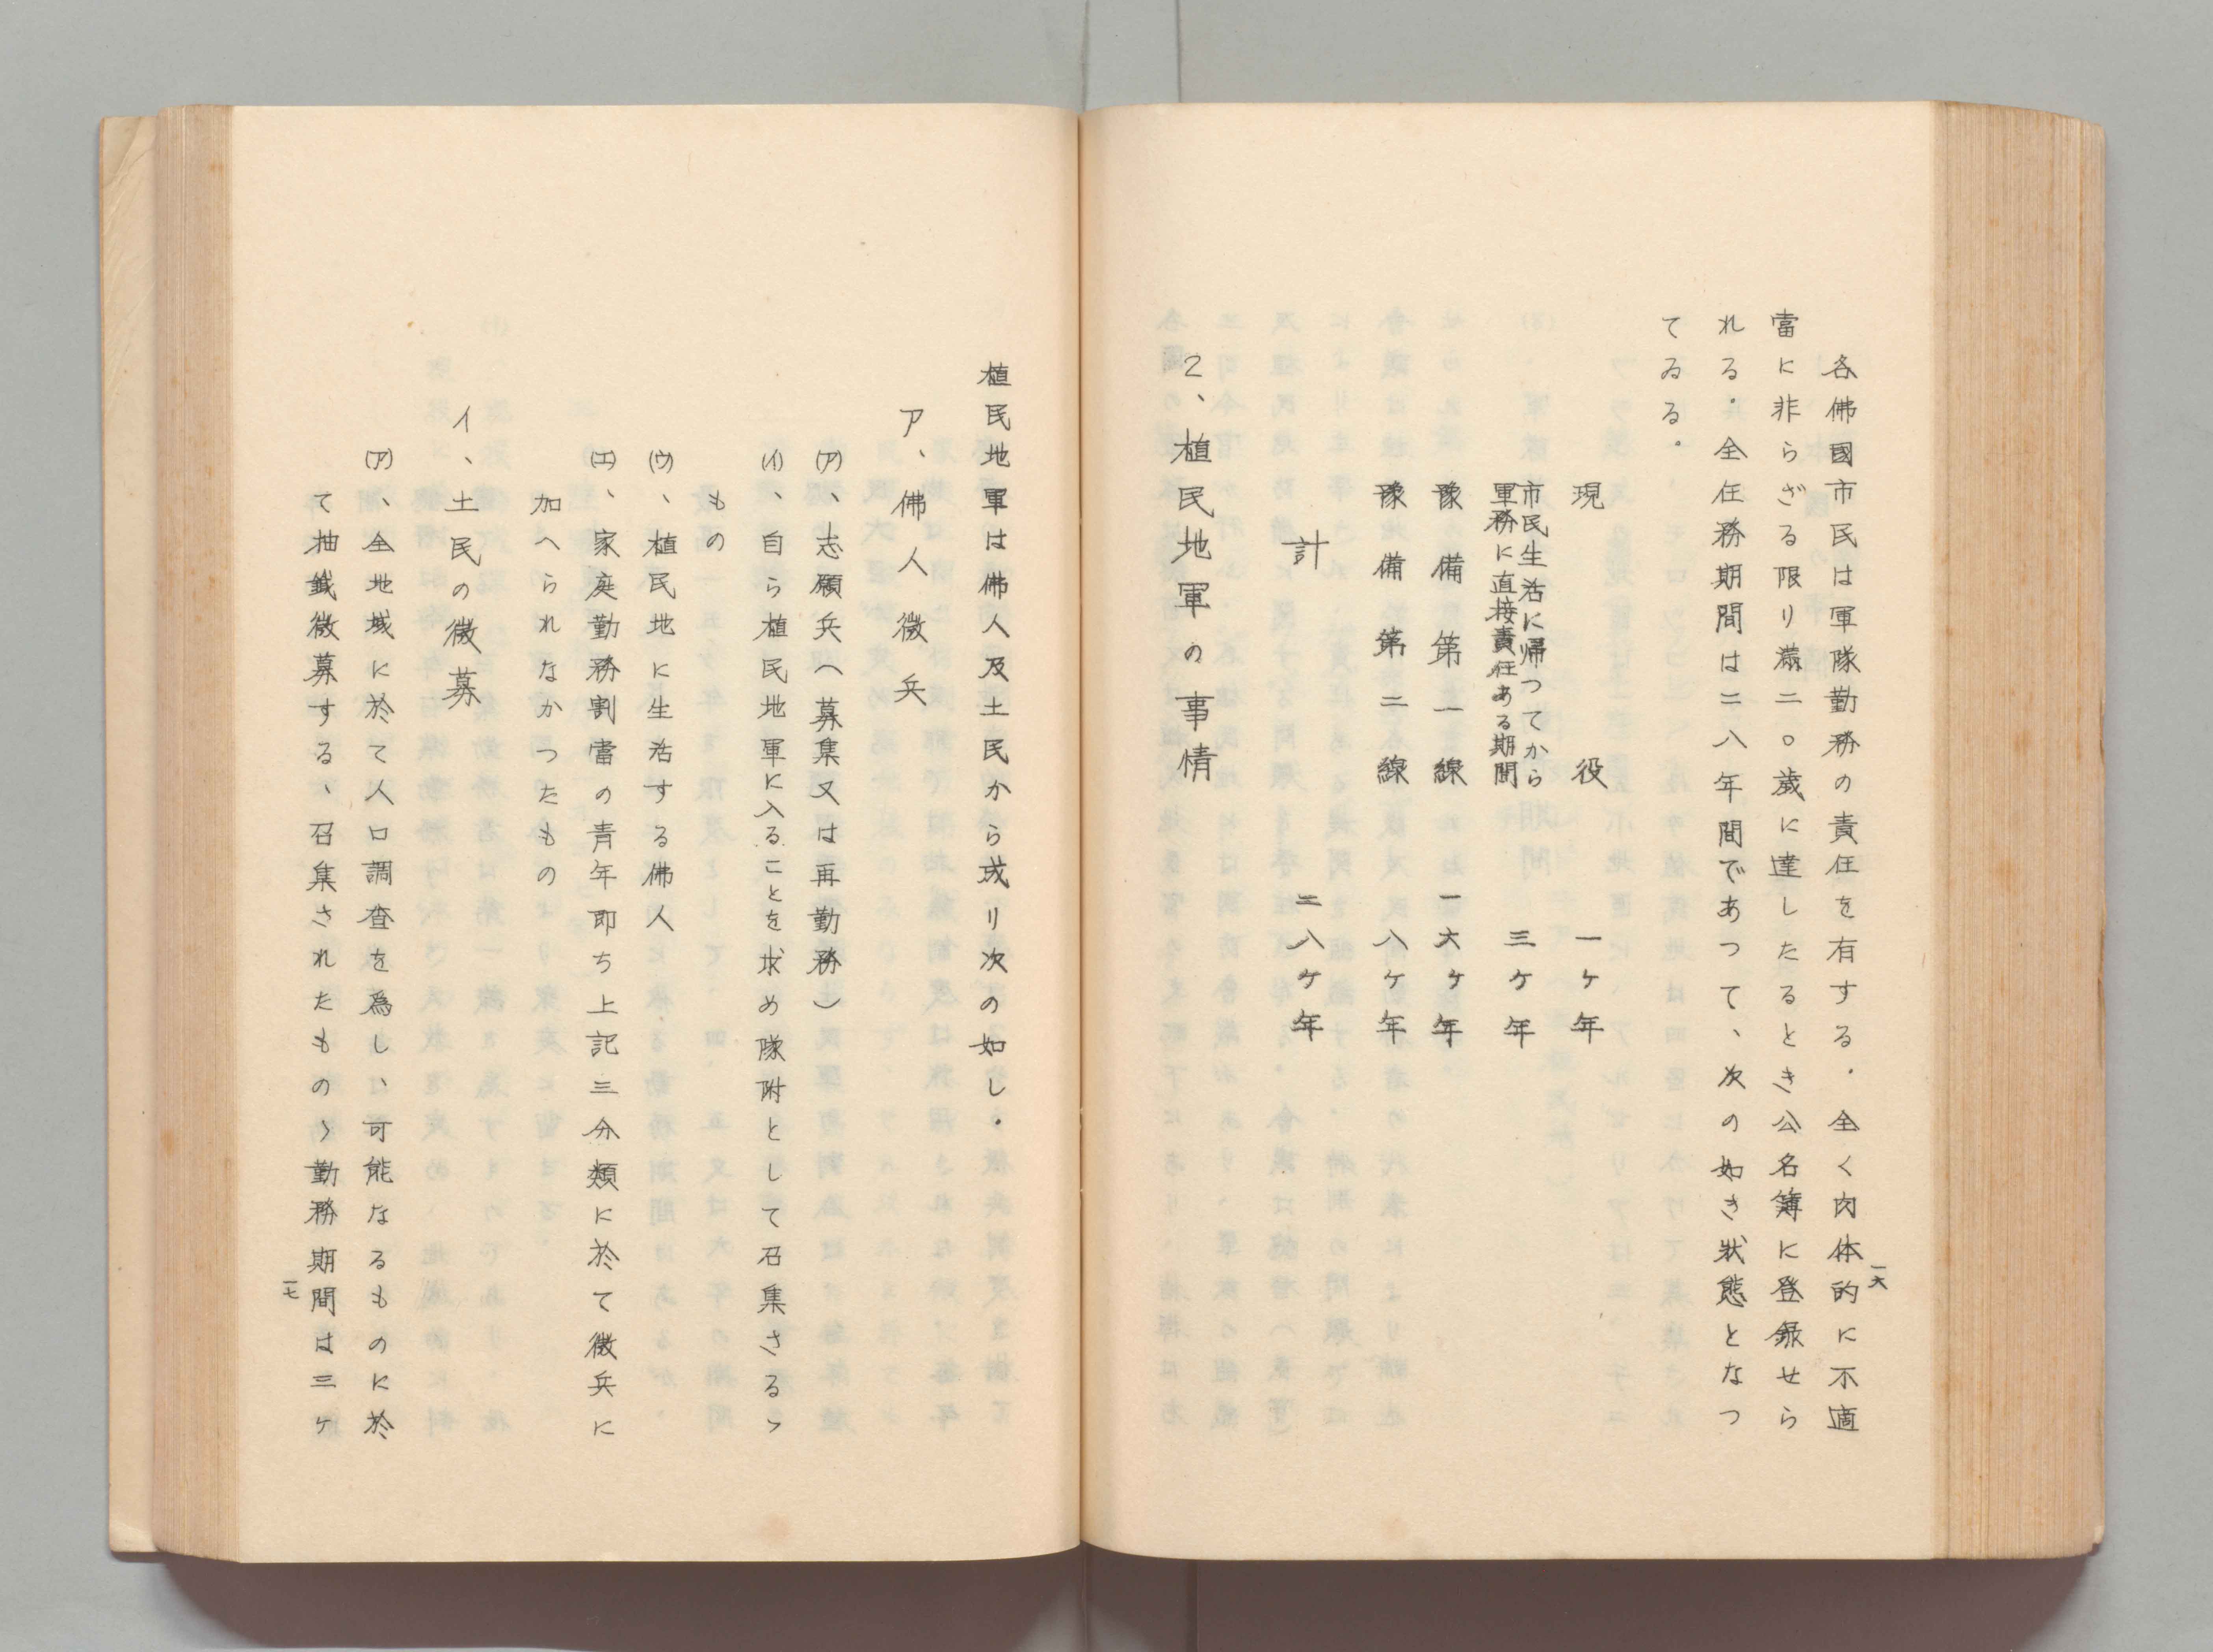 一六
各佛國市民は軍隊勤務の責任を有する．全く肉体的に不適
當に非らざる限り満二〇歳に達したるとき公名簿に登録せら
れる．全任務期間は二八年間であつて、次の如き狀態となつ
てゐる．
現役　一ケ年
市民生活に帰つてから
軍務に直接責任ある期間　三ケ年
豫備第一線　一六ケ年
豫備第二線　八ケ年
計　二八ケ年
2、植民地軍の事情
植民地軍は佛人及土民から成り次の如し．
ア、佛人徴兵
(ア)、志願兵へ募集又は再勤務)
(イ)、自ら植民地軍に入ることを求め隊附として召集さるゝ
もの
(ウ)、植民地に生活する佛人
(エ)、家庭勤務割當の青年即ち上記三分類に於て徴兵に
加へられなかつたもの
イ、土民の徴募
(ア)、全地域に於て人口調査を爲し、可能なるものに於
て抽籤徴募する、召集されたものゝ勤務期間は三ケ
一七